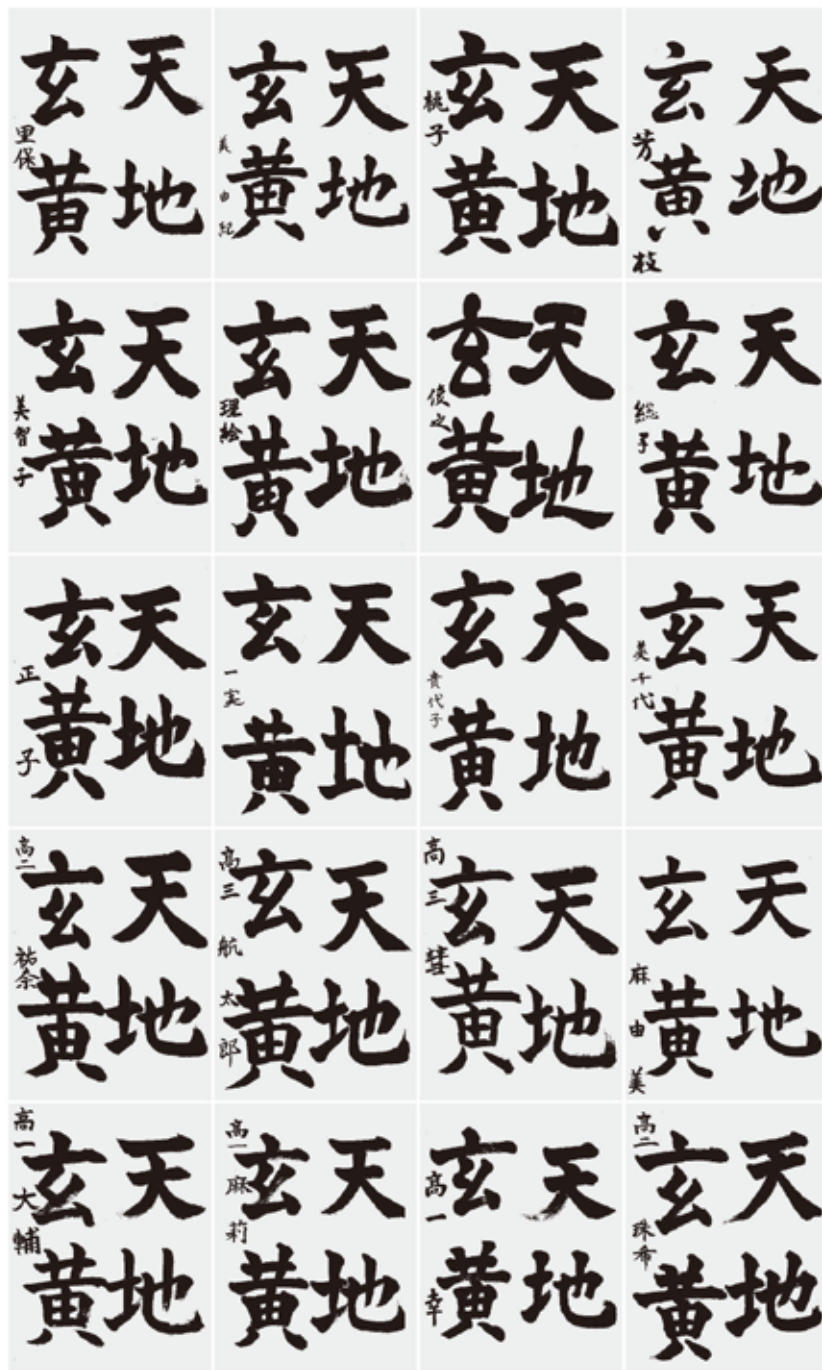 天地
玄黄
里保
天地
玄黄
美由紀
天地
玄黄
桃子
天地
玄黄
芳枝
天地
玄黄
美智子
天地
玄黄
理絵
天地
玄黄
俊之
天地
玄黄
総子
天地
玄黄
正子
天地
玄黄
天地
玄黄
貴代子
天地
玄黄
美千代
天地
玄黄
高二
天地
玄黄
高三 航太郎
天地
玄黄
高三
天地
玄黄
麻由美
天地
玄黄
高一 大輔
天地
玄黄
高一 麻莉
天地
玄黄
高一 幸
天地
玄黄
高二 珠希